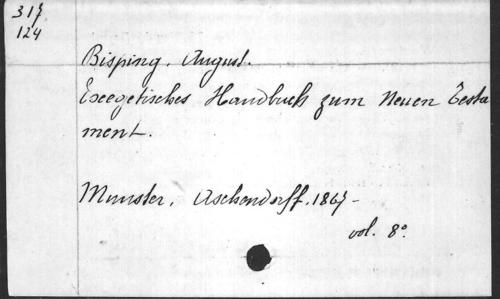 317
124
Bisping, August.
Exegetisches Handbuch zum Neuen Testa
ment.
Munster, Aschendorff, 1867-
vol. 8°